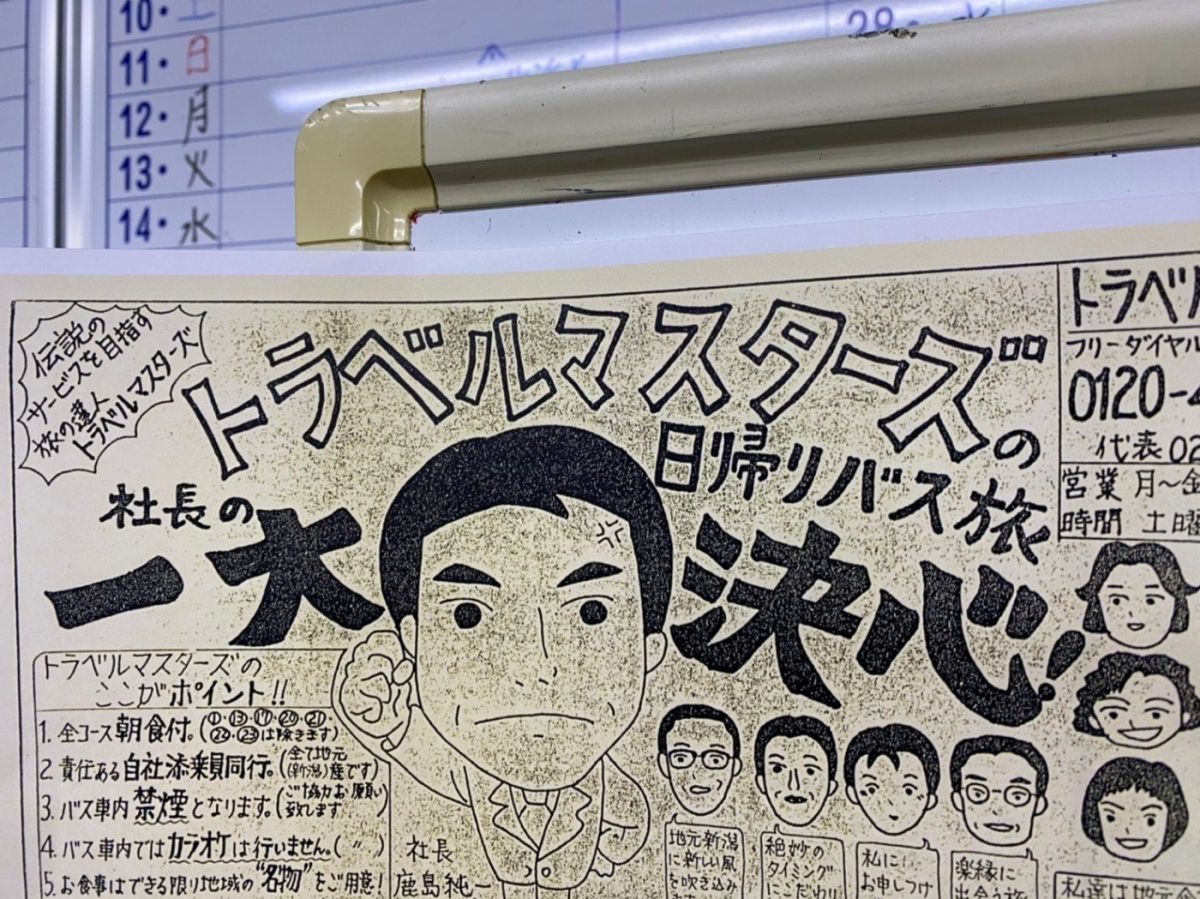 10・土
11・日
12・月
13・火
14・水
28・水
伝説の
サービスを目指す
旅の達人
トラベルマスターズ
トラベルマスターズの
日帰りバス旅
社長の
一大決心!
トラベル
フリーダイヤル
0120-
代表 02
営業 月～金
時間 土曜
トラベルマスターズの
ここがポイント!!
1. 全コース朝食付。(①・⑬・⑰・⑳・㉑・㉒・㉓は除きます)
2. 責任ある自社添乗員同行。(全て地元(新潟)産です)
3. バス車内禁煙となります。(ご協力お願い致します)
4. バス車内ではカラオケは行いません。(〃)
5. お食事はできる限り地域の“名物”をご用意!
社長
鹿島純一
地元新潟
に新しい風
を吹き込み
絶妙の
タイミング
にこだわり
私に
お申しつけ
楽縁に
出会う旅
私達は地元